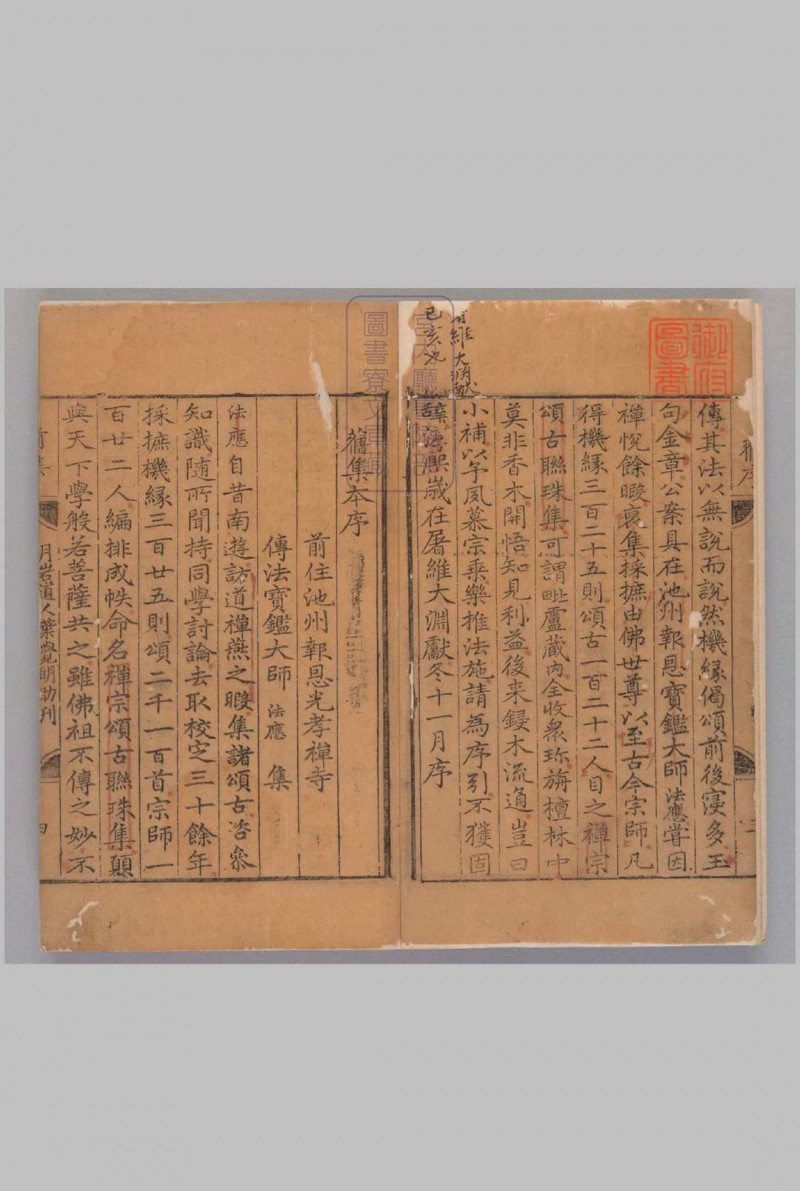 舊序
傳其法以無說而說然機緣偈頌前後寖多玉
句金章公案具在池州報恩寶鑑大師法應嘗因
禪悅餘暇裒集採摭由佛世尊以至古今宗師凡
得機緣三百二十五則頌古一百二十二人目之禪宗
頌古聯珠集可謂毗盧藏內全收衆珎旃檀林中
莫非香木開悟知見利益後来鋟木流通豈曰
小補以予夙慕宗乘樂推法施請為序引不獲固
辭淳熙歲在屠維大淵獻冬十一月序
屠維大淵獻
己亥也
御府
圖書
宮内廳
圖書寮文庫
舊集本序
前住池州報恩光孝禪寺
傳法寶鑑大師 法應 集
法應自昔南遊訪道禪燕之暇集諸頌古咨參
知識随所聞持同學討論去取校定三十餘年
採摭機緣三百廿五則頌二千一百首宗師一
百廿二人編排成帙命名禪宗頌古聯珠集願
與天下學般若菩薩共之雖佛祖不傳之妙不
前集
月岩道人葉 明助刊
四